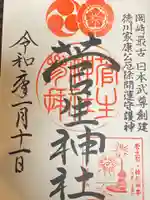 岡崎最古日本武尊創建
徳川家康公厄除開運守護神
菅生神社
令和 年 月十一日